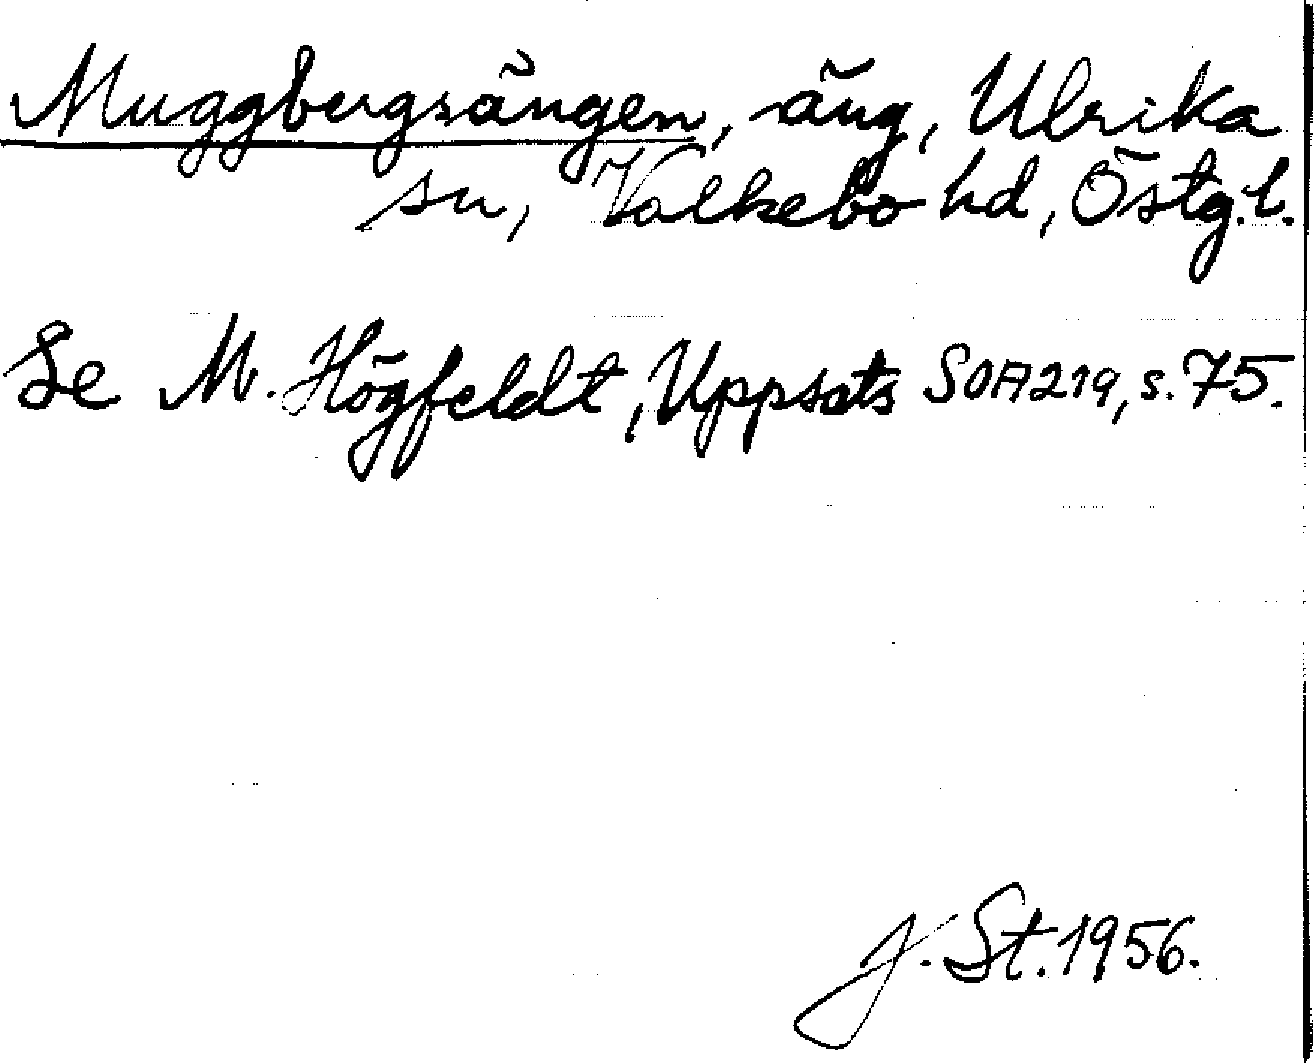 Muggbergsängen, äng, Ulrika
sn, Valkebo hd, Östg.l.
Se M. Högfeldt, Uppsats SOA219, s. 75.
J. St. 1956.